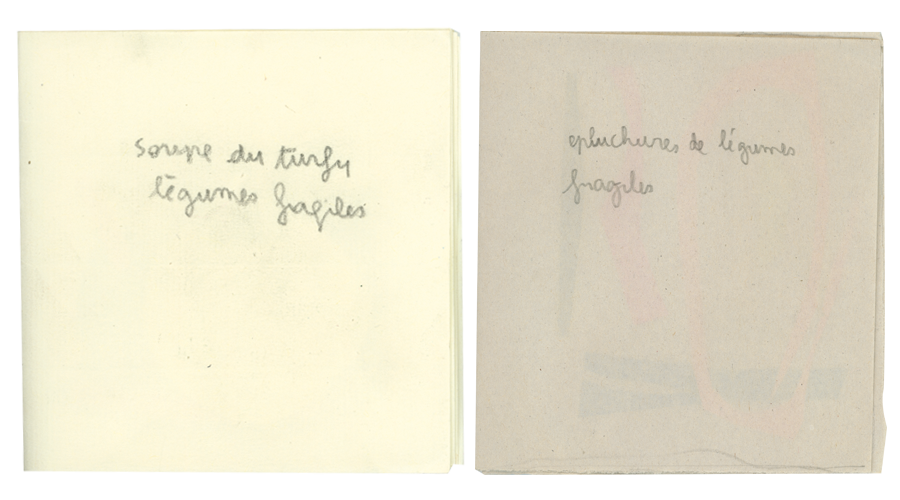 soupe du turfu
légumes fragiles
epluchures de légumes
fragiles